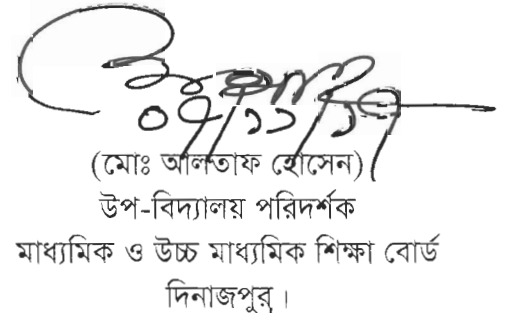 ০৭/১১/১৭
(মোঃ আলতাফ হোসেন)
উপ-বিদ্যালয় পরিদর্শক
মাধ্যমিক ও উচ্চ মাধ্যমিক শিক্ষা বোর্ড
দিনাজপুর।